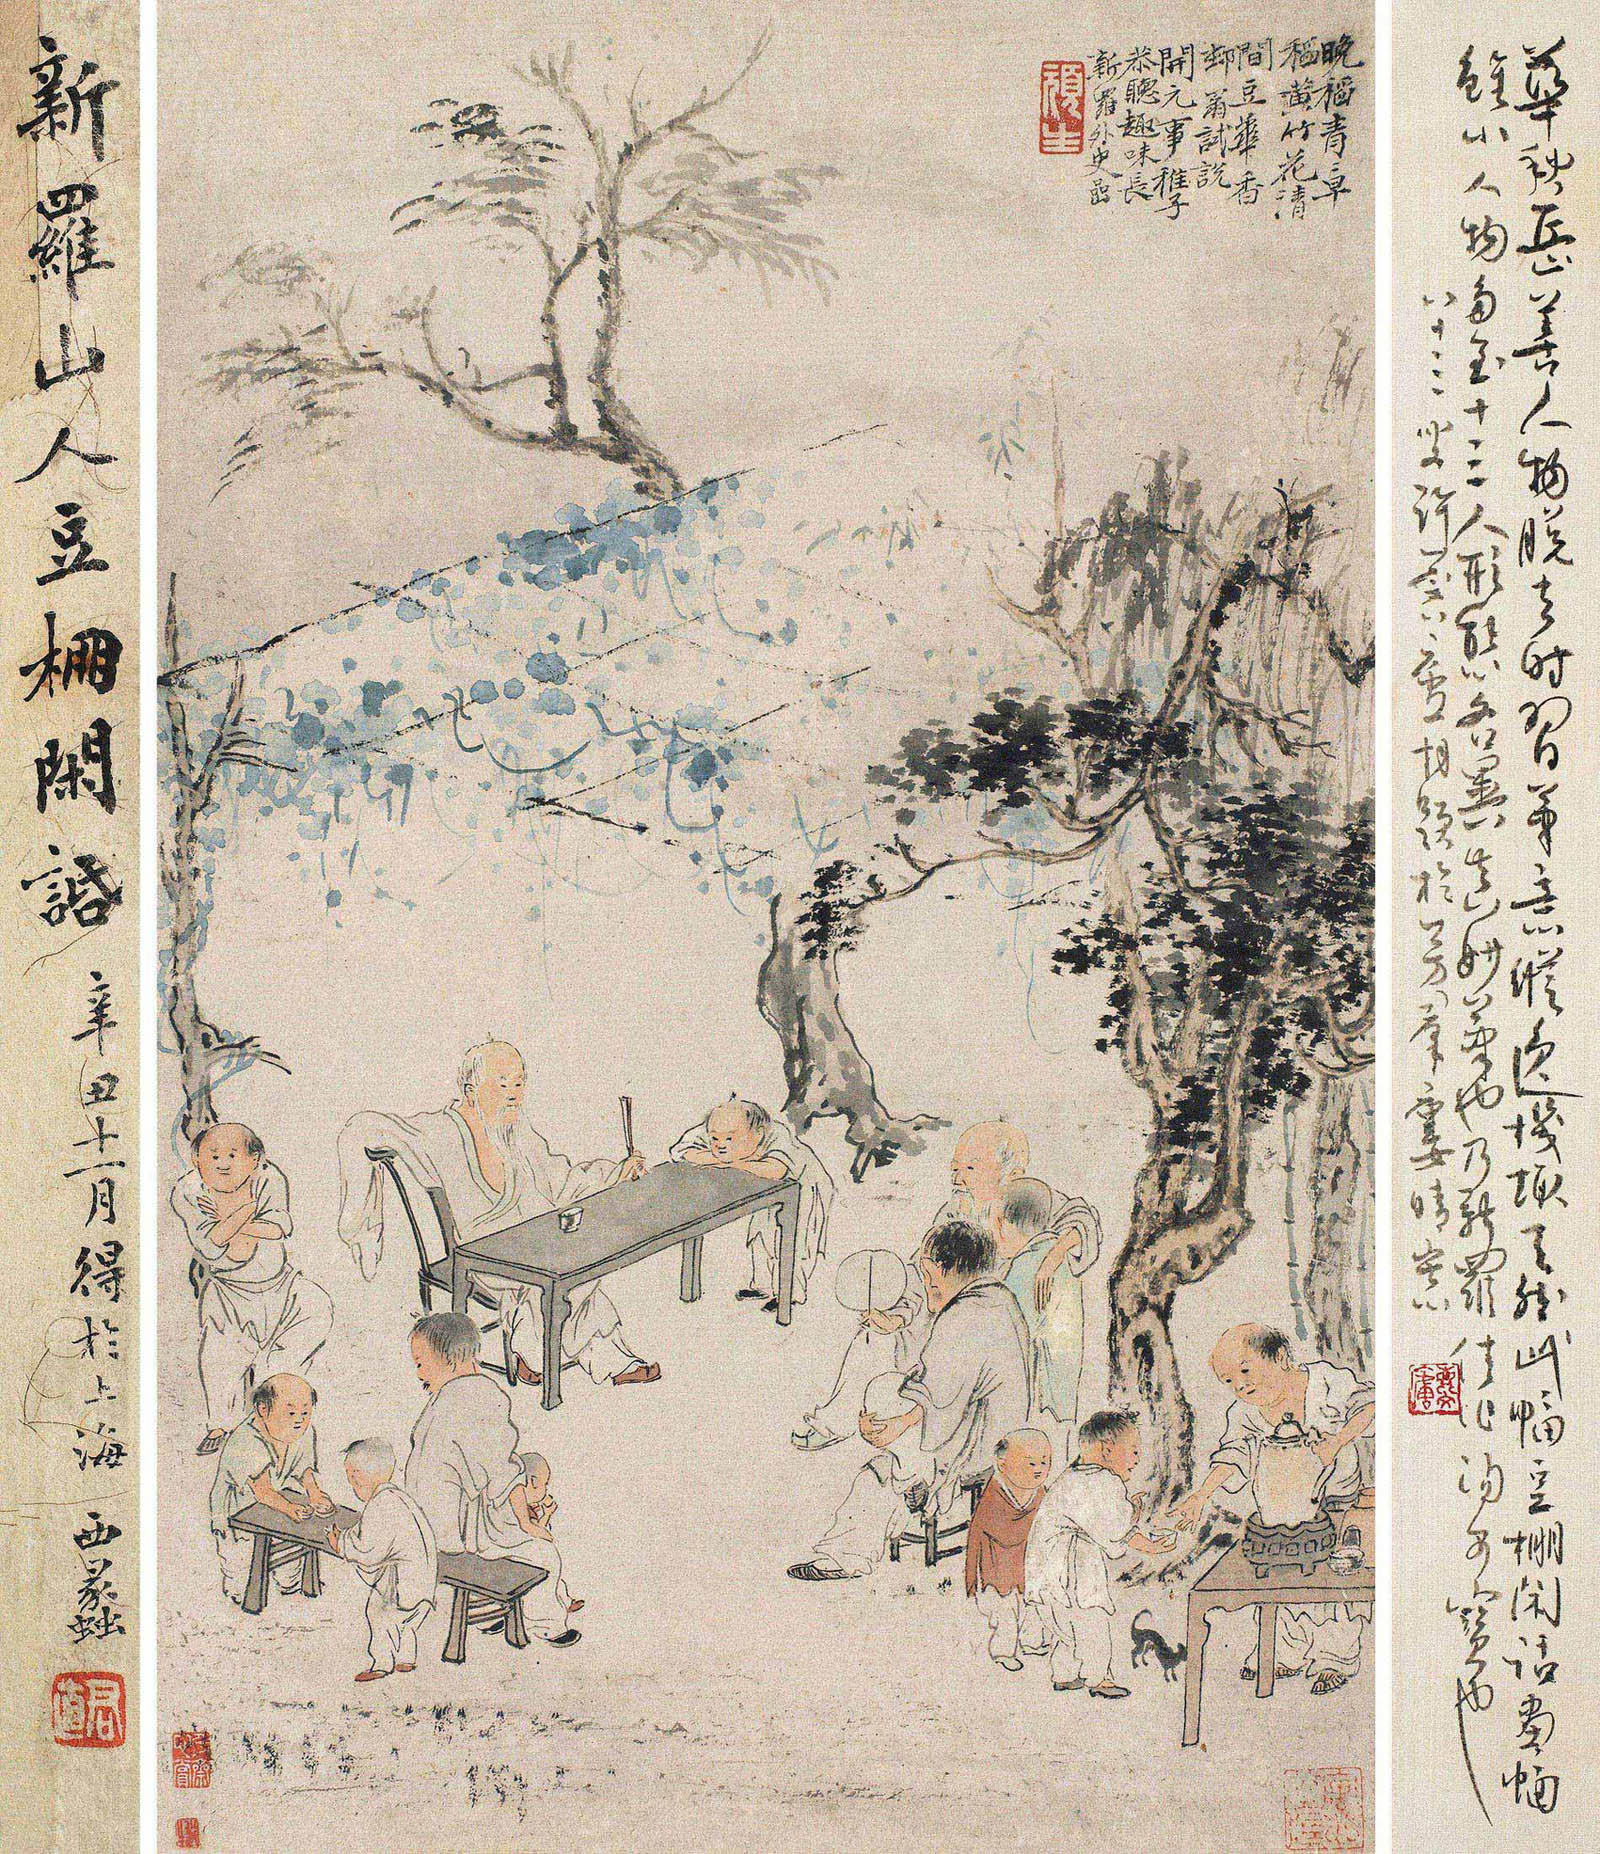 華秋岳善人物脫去時習筆意縱逸機天然此幅豆棚閑話畫幅
雖小人物多至十三人形態各異真妙筆也乃新羅佳作得者寶也
八十二叟許題於晴窗
晚稻青早
稻黃竹花清
間豆華香
邨翁試說
開元事稚子
恭聽趣味長
新羅外史喦
頑生
新羅山人豆棚閑諙
辛丑十一月得於上海 西蠡
君直